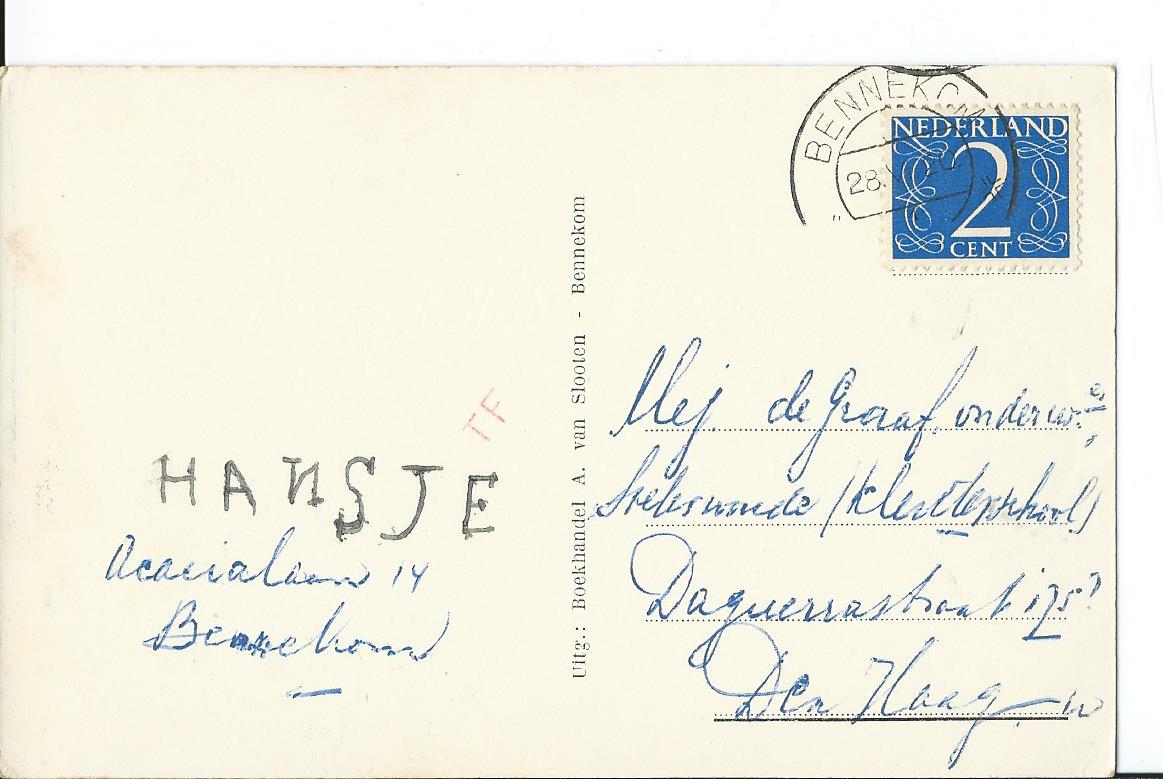 BENNEKOM
28.V
NEDERLAND
2
CENT
Uitg.: Boekhandel A. van Slooten - Bennekom
TF
HANSJE
Acacialaan 14
Bennekom
Mej. de Graaf, onderw.es
(kleuterschool)
Daguerrastraat 175?
Den Haag